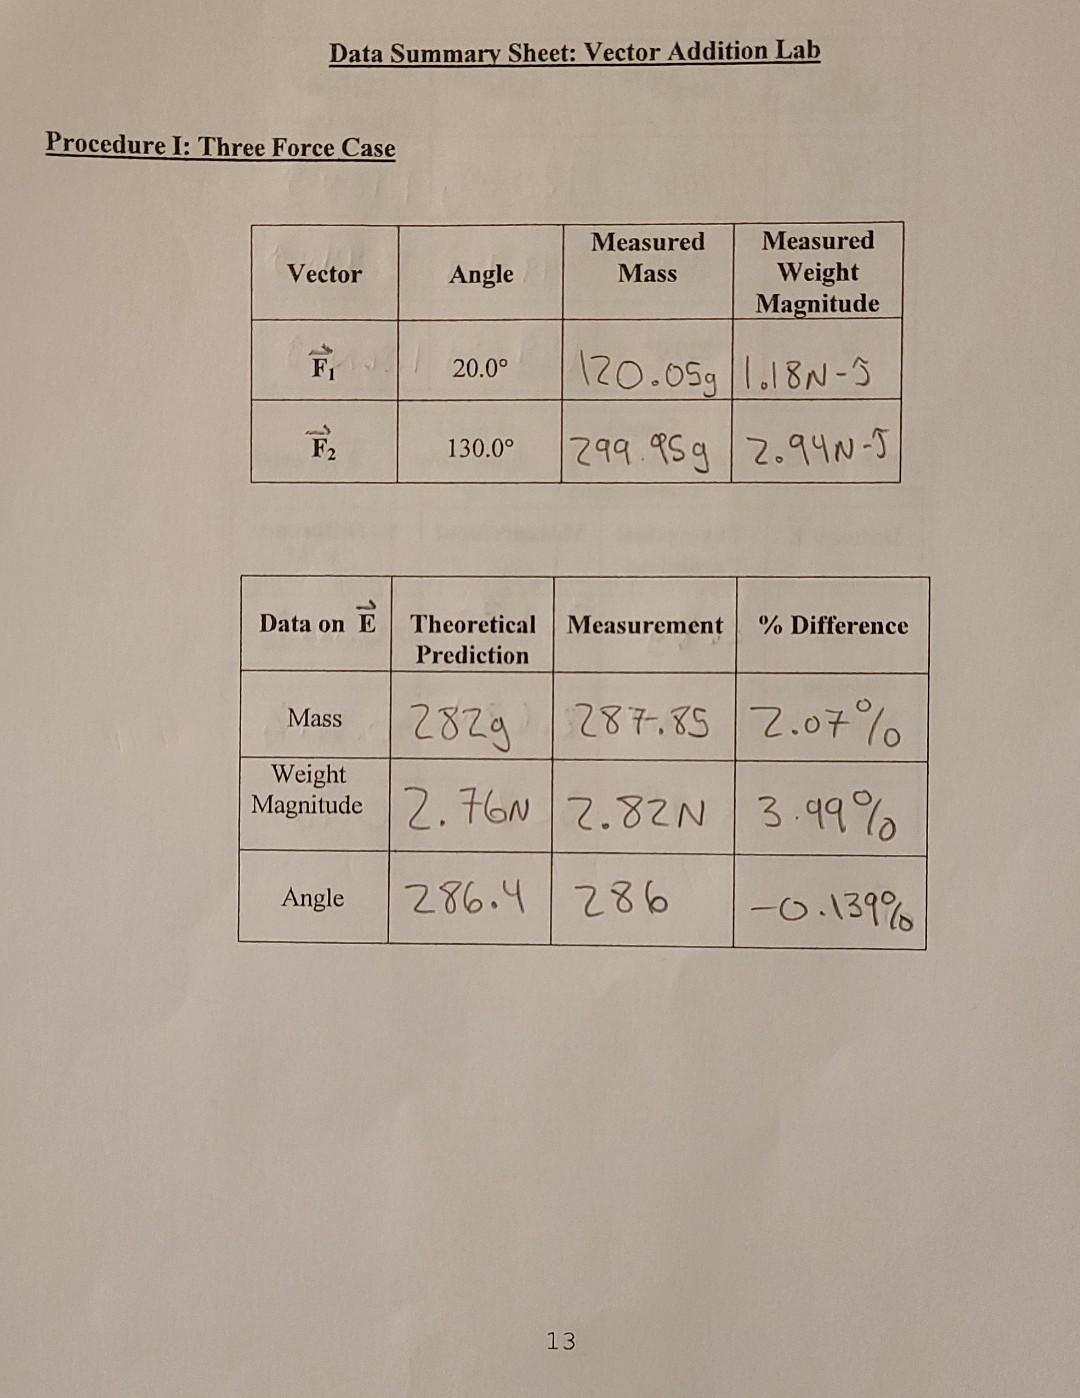 Data Summary Sheet: Vector Addition Lab
Procedure I: Three Force Case
Vector Angle Measured Mass Measured Weight Magnitude
F₁ 20.0° 120.05g 1.18N-J
F₂ 130.0° 299.95g 2.94N-J
Data on E Theoretical Prediction Measurement % Difference
Mass 282g 287.85 2.07%
Weight Magnitude 2.76N 2.82N 3.99%
Angle 286.4 286 -0.139%
13